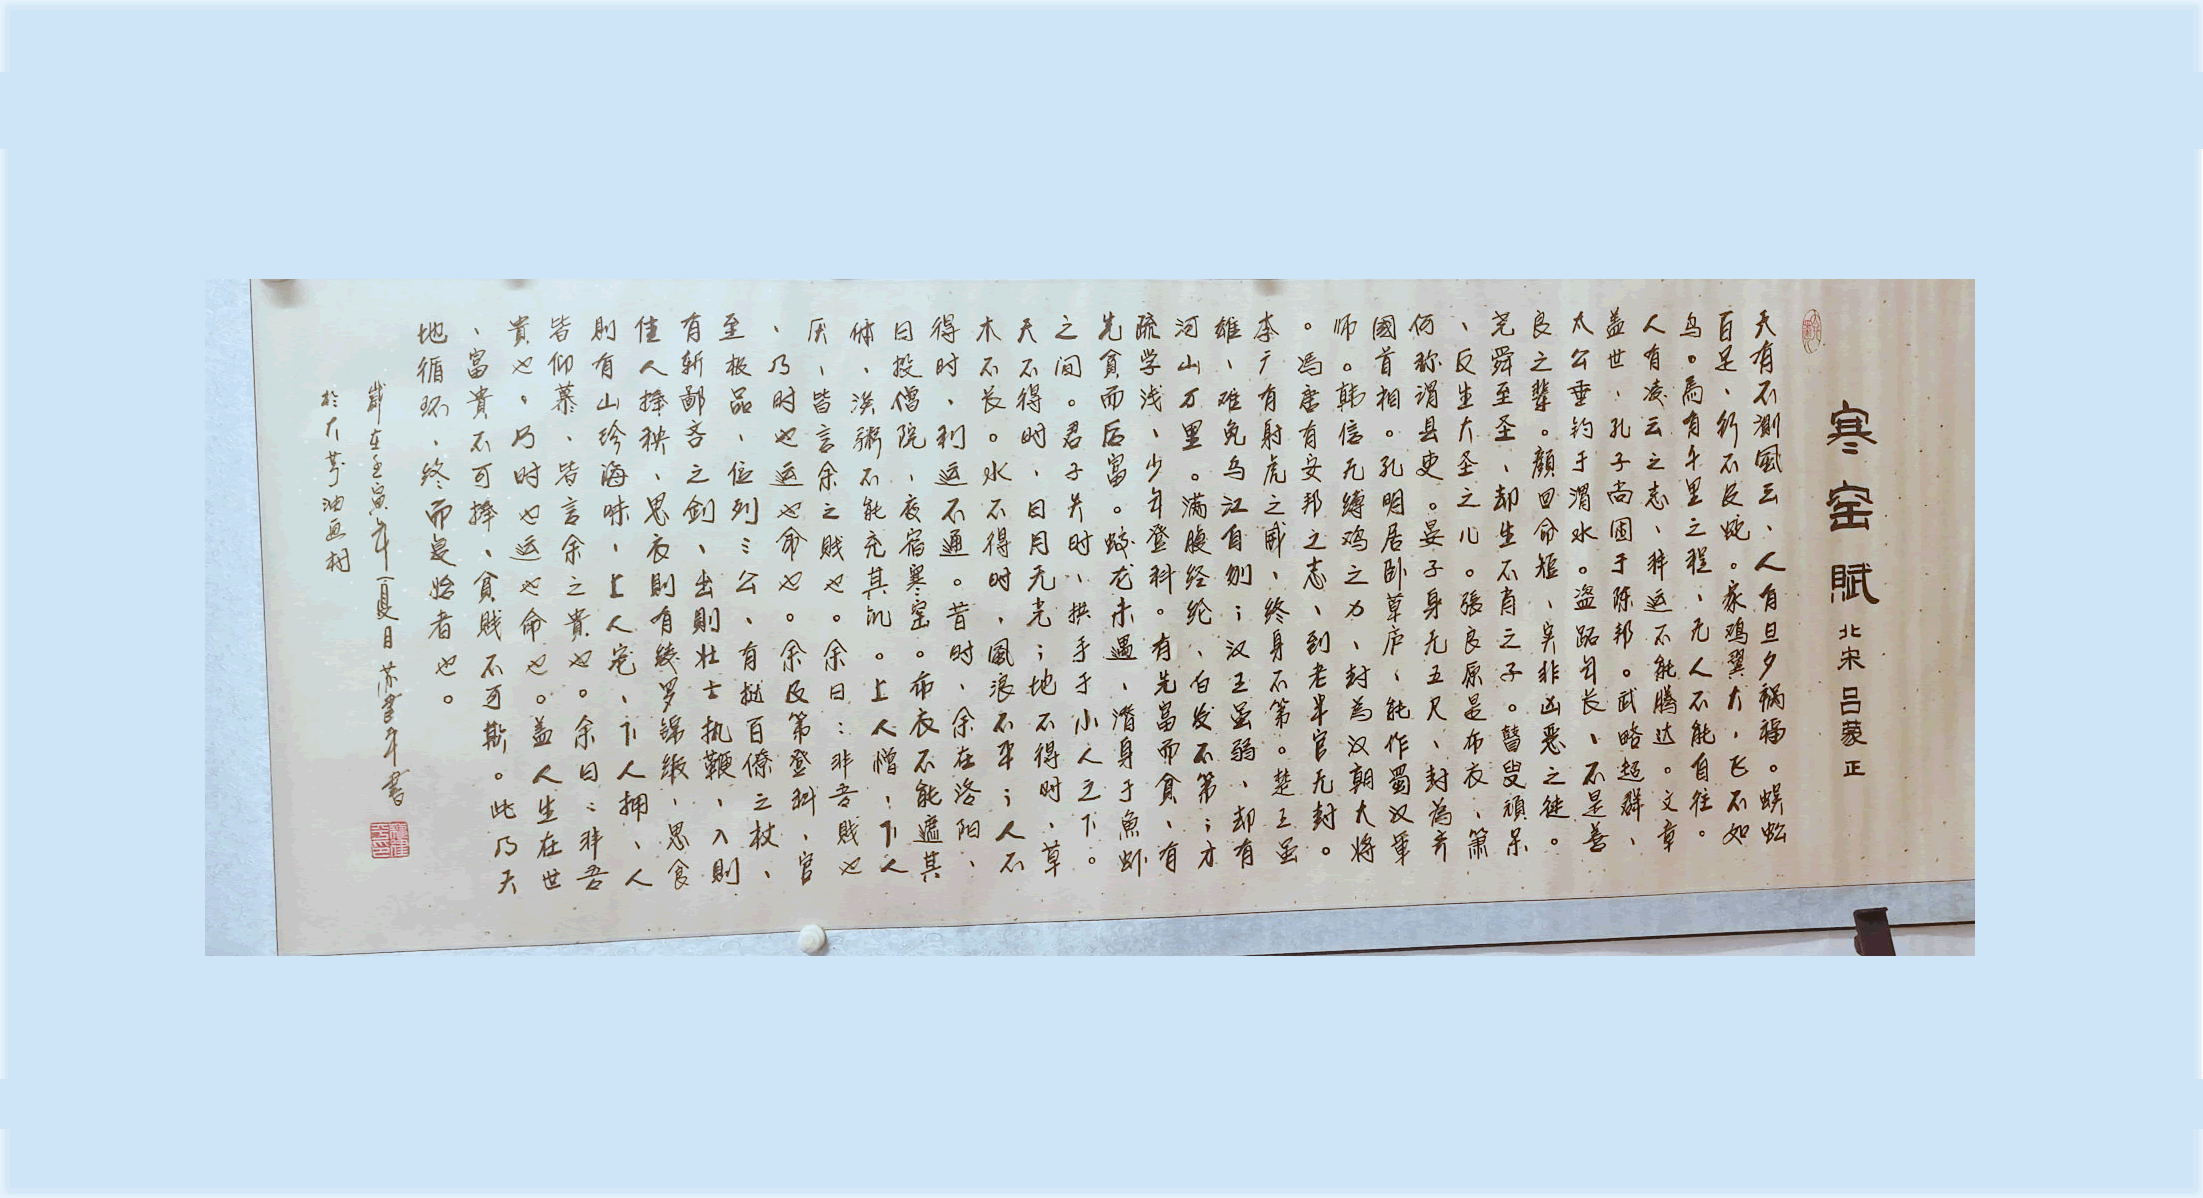 寒窑賦 北宋 吕蒙正
天有不測風云、人有旦夕祸福。蜈蚣
百足、行不及蛇。家鸡翼大，飞不如
鸟。馬有千里之程、无人不能自往。
人有凌云之志、非运不能腾达。文章
盖世、孔子尚困于陈邦。武略超群、
太公垂钓于渭水。盗跖年长、不是善
良之輩。顏回命短、实非凶恶之徒。
尧舜至圣、却生不肖之子。瞽叟頑呆
、反生大圣之儿。張良原是布衣、箫
何称谓县吏。晏子身无五尺、封為齐
國首相。孔明居卧草庐、能作蜀汉軍
师。韩信无缚鸡之力、封為汉朝大将
。馮唐有安邦之志、到老半官无封。
李广有射虎之威、终身不第。楚王虽
雄、难免乌江自刎；汉王虽弱、却有
河山万里。满腹经纶、白发不第；才
疏学浅、少年登科。有先富而貪、有
先貪而后富。蛟龙未遇、潛身于魚虾
之间。君子失时、拱手于小人之下。
天不得时、日月无光；地不得时、草
木不长。水不得时、風浪不平；人不
得时、利运不通。昔时、余在洛阳、
日投僧院、夜宿寒窑。布衣不能遮其
体、淡粥不能充其饥。上人憎；下人
厌、皆言余之贱也。余曰：非吾贱也
、乃时也运也命也。余及第登科、官
至极品、位列三公、有挞百僚之杖、
有斩鄙吝之剑、出則壮士执鞭、入則
佳人捧秧、思衣則有綾罗錦缎、思食
則有山珍海味、上人宠、下人拥、人
皆仰慕、皆言余之貴也。余曰：非吾
貴也。乃时也运也命也。盖人生在世
、富貴不可捧、貪贱不可欺。此乃天
地循环、终而复始者也。
歲在壬寅年夏日 書
於大芬油画村